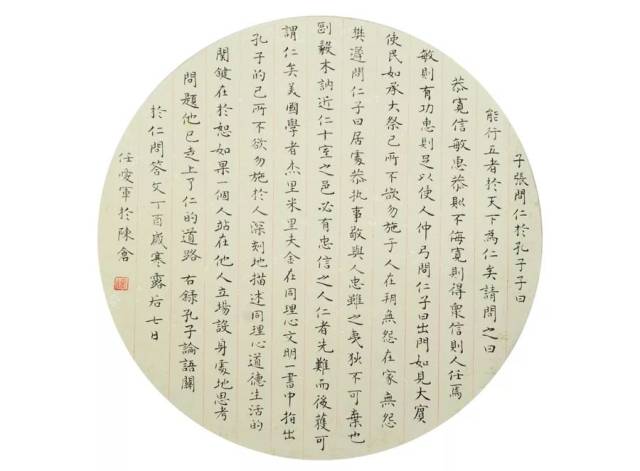 子張問仁於孔子子曰
能行五者於天下為仁矣請問之曰
恭寬信敏惠恭則不侮寬則得衆信則人任焉
敏則有功惠則足以使人仲弓問仁子曰出門如見大賓
使民如承大祭己所不欲勿施于人在邦無怨在家無怨
樊遲問仁子曰居處恭执事敬與人忠雖之夷狄不可棄也
剛毅木訥近仁十室之邑必有忠信之人仁者先難而後獲可
謂仁矣美國學者杰里米里夫金在同理心文明一書中指出
孔子的己所不欲勿施於人深刻地描述同理心道德生活的
関鍵在於恕如果一個人站在他人立場設身處地思考
問題他已走上了仁的道路 右録孔子論語關
於仁問答文丁酉歲寒露后七日
任愛軍於陳倉